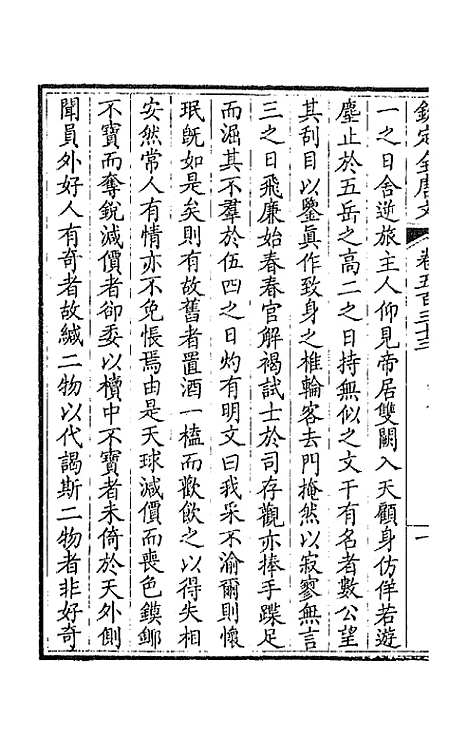 欽定全唐文　卷五百三十三　一
一之日舍逆旅主人仰見帝居雙闕入天顧身仿佯若遊
塵止於五岳之高二之日持無似之文干有名者數公望
其刮目以鑒真作致身之椎輪客去門掩然以寂寥無言
三之日飛廉始春春官解褐試士於司存觀亦捧手蹀足
而漚其不羣於伍四之日灼有明文曰我采不渝爾則懷
珉旣如是矣則有故舊者置酒一榼而歡飲之以得失相
安然常人有情亦不免悵焉由是天球減價而喪色鏌鋣
不寶而奪銳減價者卻委以櫝中不寶者未倚於天外側
聞員外好人有奇者故緘二物以代謁斯二物者非好奇